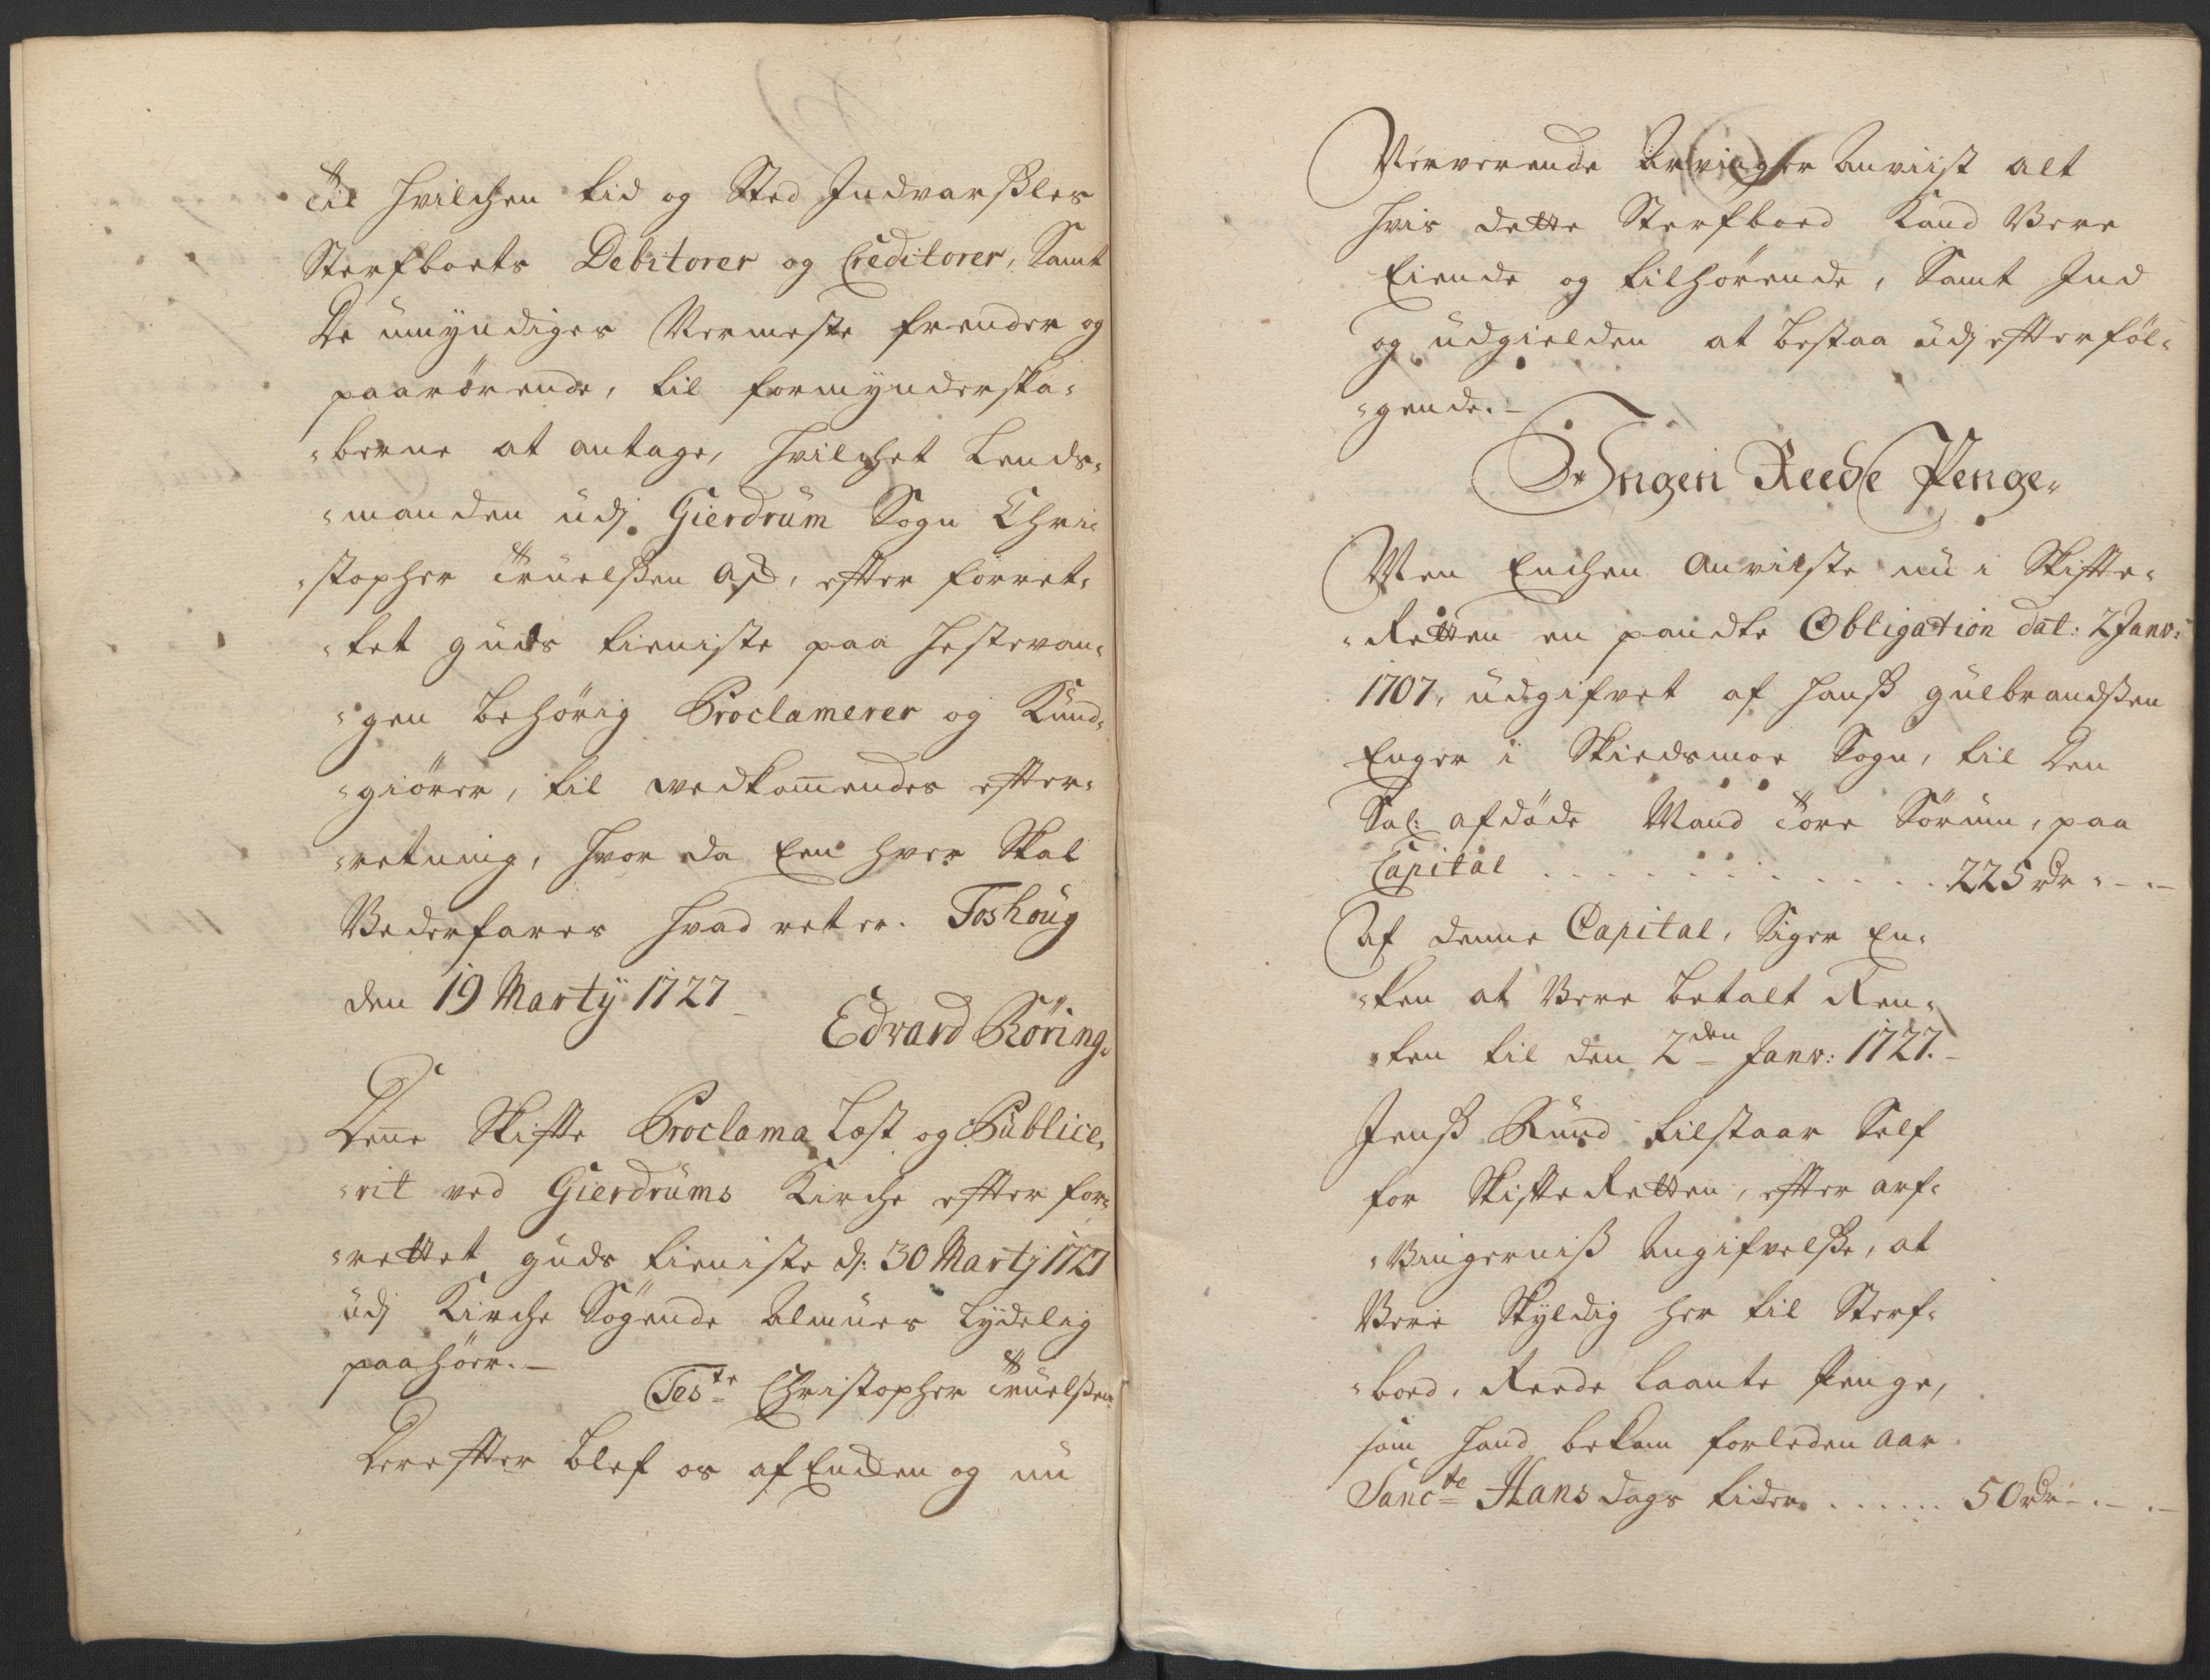 Til hvilchen tid og Sted Indvarsles
Sterfboets Debitorer og Creditorer, Samt
De umyndiges Nermeste frender og
paarörende, til formynderska-
-berne at antage, hvilchet Lends-
-manden udj Gierdrum Sogn Chri-
-stopher Truelsen Asch, efter forret-
-tet guds tieniste paa Hestevan-
-gen behörig Proclamerer og Kund-
-giörer, til vedkommendes efter-
-retning, hvor da Een hver Skal
Vederfares hvad ret er. Foshoug
den 19 Martij 1727
Edvard Röring.
Denne Skifte Proclama Læst og Publice-
-rit ved Gierdrums Kirche efter for-
-rettet guds tieniste d: 30 Martj 1727
udj Kirche Sögende Almues Lydelig
paahöer.
Teste Christopher Truelsen
Derefter blef os af Enchen og nu
Nerverende Arvinger Anviist alt
hvis dette Sterfboed Kand Vere
Eiende og tilhörende, Samt Ind
og udgielden at bestaa udj efterföl-
-gende.
Ingen Reede Penge.
Men Enchen Anviiste nu i Skifte-
-Retten en pandte Obligation dat: 2 Janv:
1707, udgifvet af Hans gulbrandsen
Enger i Skiedsmoe Sogn, til Den
Sal: afdöde Mand Tore Sörum, paa
Capital . . . . . . . . . . . . 225 rdr - -
Af denne Capital, Siger En-
-ken at Vere betalt Ren-
-ten til den 2den Janv: 1727.
Jens Rund tilstaar Self
for Skifte Retten, efter arf-
-Vingernis Angifvelse, at
Vere Skyldig her til Sterf-
-boed, Reede laante Penge,
som hand bekam forleden Aar
Sancte Hans dags tider . . . . . . 50 rdr - -